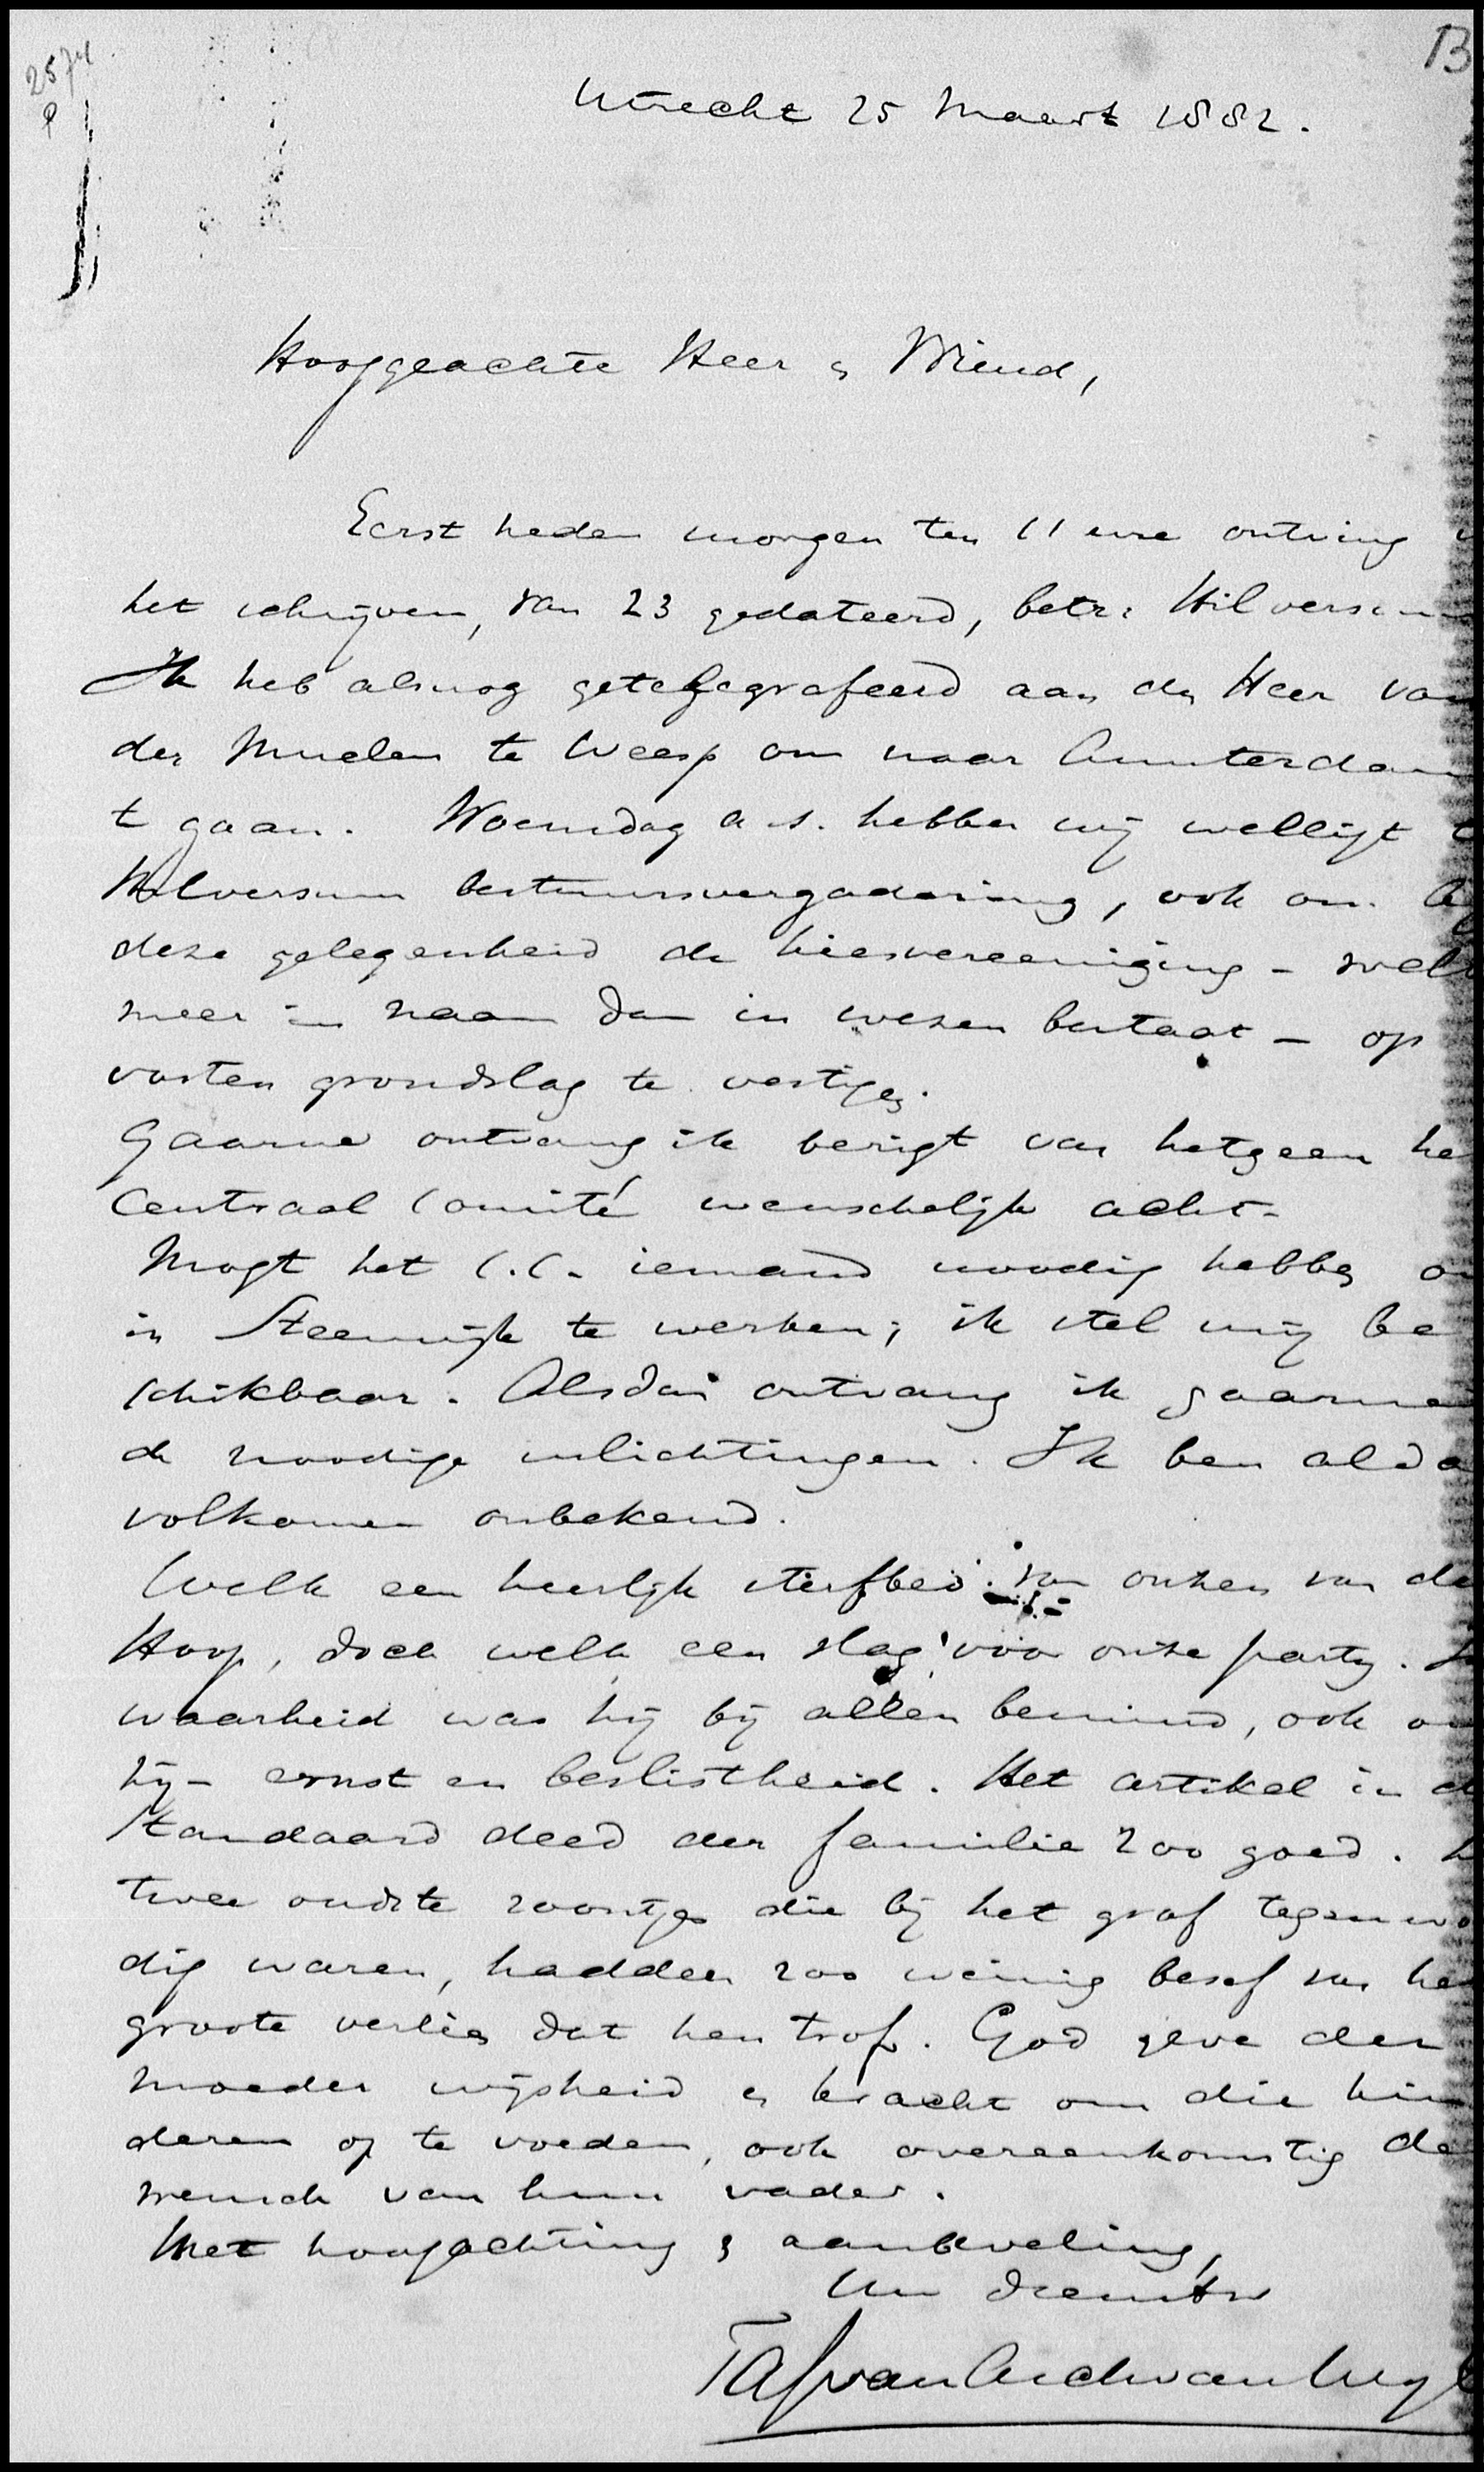 2574
B
Utrecht 25 Maart 1882.
Hooggeachte Heer & Vriend,
Eerst heden morgen ten 11 ure ontving
het schrijven, van 23 gedateerd, betr: Hilversum
Ik heb alsnog getelegrafeerd aan den Heer van
der Muelen te Weesp om naar Amsterdam
t gaan. Woensdag a.s. hebben wij welligt
Hilversum bestuursvergadering, ook om
deze gelegenheid de kiesvereeniging - welk
meer in naam dan in wezen bestaat - op
vasten grondslag te vestigen.
Gaarne ontvang ik berigt van hetgeen he
Centraal Comité wenschelijk acht.
Mogt het C.C. iemand noodig hebben o
in Steenwijk te werken; ik stel mij be
schikbaar. Alsdan ontvang ik gaarne
de noodige inlichtingen. Ik ben alda
volkomen onbekend.
Welk een heerlijk sterfbed van onzen van de
Hoop, doch welk een slag voor onze party.
waarheid was hij bij allen bemind, ook o
zijn ernst en beslistheid. Het artikel in d
Standaard deed der familie zoo goed.
twee oudste zoontjes die bij het graf tegenwo
dig waren, hadden zoo weinig besef van he
groote verlies dat hen trof. God geve der
moeder wijsheid en kracht om die kin
deren op te voeden, ook overeenkomstig de
wensch van hun vader.
Met hoogachting & aanbeveling,
Uw dienstw
TAJ van Asch van Wijc